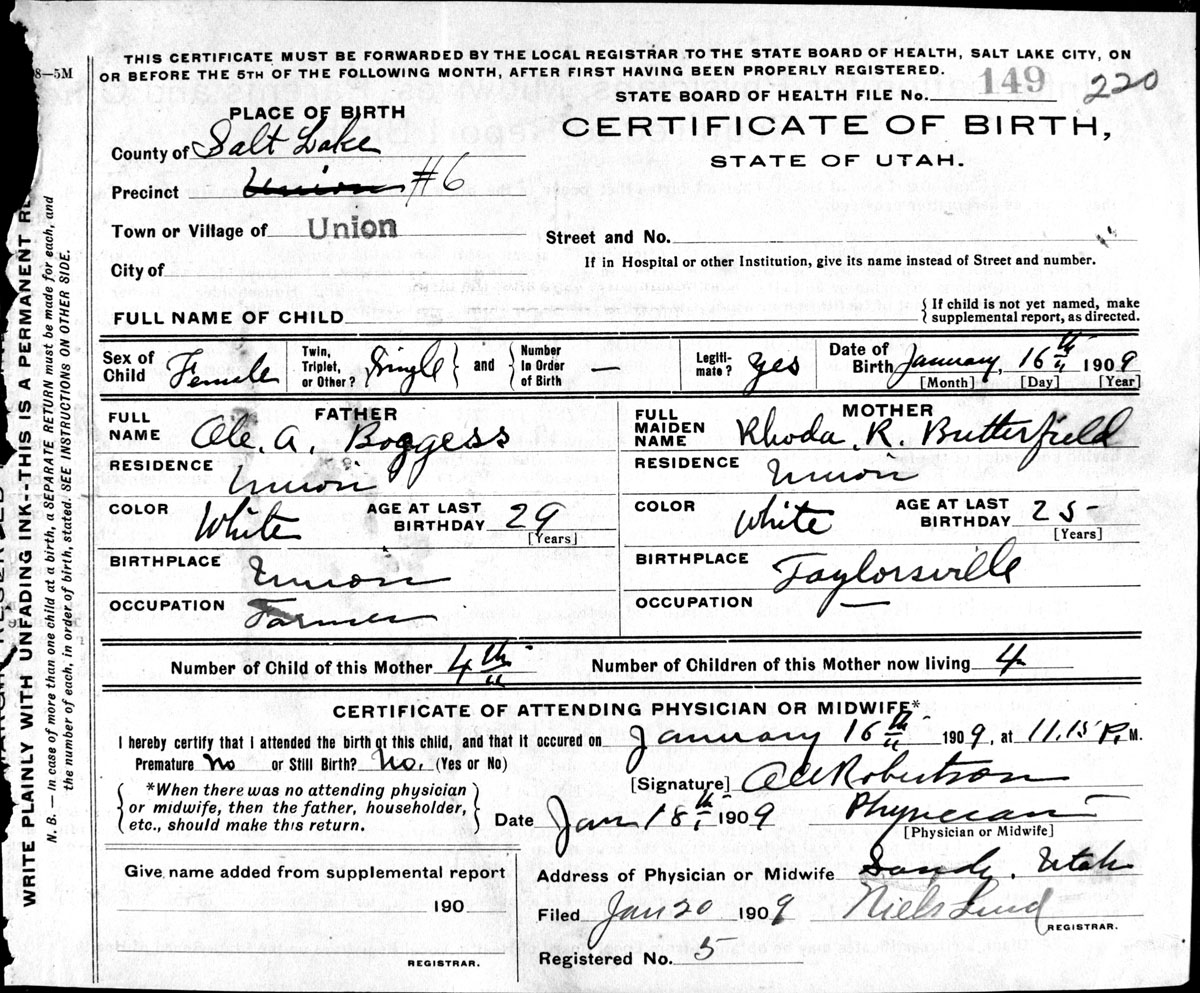 THIS CERTIFICATE MUST BE FORWARDED BY THE LOCAL REGISTRAR TO THE STATE BOARD OF HEALTH, SALT LAKE CITY, ON
OR BEFORE THE 5TH OF THE FOLLOWING MONTH, AFTER FIRST HAVING BEEN PROPERLY REGISTERED.
8—5M
STATE BOARD OF HEALTH FILE No. 149 220
PLACE OF BIRTH
CERTIFICATE OF BIRTH,
STATE OF UTAH.
County of Salt Lake
Precinct Union #6
Town or Village of Union
Street and No.
City of
If in Hospital or other Institution, give its name instead of Street and number.
FULL NAME OF CHILD
{ If child is not yet named, make
supplemental report, as directed.
Sex of Child Female
Twin, Triplet, or Other? Single } and { Number in Order of Birth —
Legiti- mate? yes
Date of Birth January, 16th 1909
[Month] [Day] [Year]
FATHER
FULL NAME Ole. A. Boggess
RESIDENCE Union
COLOR White AGE AT LAST BIRTHDAY 29
[Years]
BIRTHPLACE Union
OCCUPATION Farmer
MOTHER
FULL MAIDEN NAME Rhoda R. Butterfield
RESIDENCE Union
COLOR White AGE AT LAST BIRTHDAY 25
[Years]
BIRTHPLACE Taylorsville
OCCUPATION —
Number of Child of this Mother 4th Number of Children of this Mother now living 4
CERTIFICATE OF ATTENDING PHYSICIAN OR MIDWIFE*
I hereby certify that I attended the birth of this child, and that it occured on January 16th 1909, at 11.15 P. M.
Premature No or Still Birth? No. (Yes or No)
[Signature] Robertson
{ *When there was no attending physician
or midwife, then the father, householder,
etc., should make this return. }
Date Jan 18th 1909 Physician
[Physician or Midwife]
Give name added from supplemental report
190
REGISTRAR.
Address of Physician or Midwife Sandy. Utah
Filed Jan 20 1909 Niels Lind
REGISTRAR.
Registered No. 5
WRITE PLAINLY WITH UNFADING INK--THIS IS A PERMANENT RE
N. B. — In case of more than one child at a birth, a SEPARATE RETURN must be made for each, and
the number of each, in order of birth, stated. SEE INSTRUCTIONS ON OTHER SIDE.